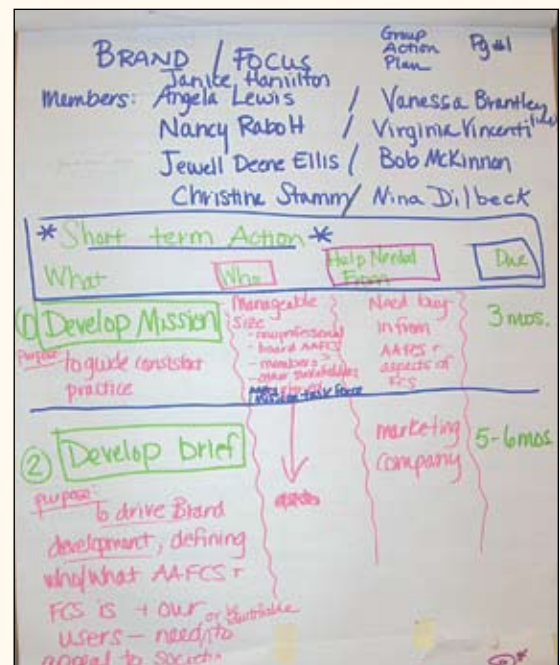 BRAND / FOCUS
Group Action Plan
Pg #1
Janice Hamilton
Members: Angela Lewis / Vanessa Brantley
Nancy Rabolt / Virginia Vincenti
Jewell Deene Ellis / Bob McKinnon
Christine Stamm / Nina Dilbeck
* Short term Action *
What
Who
Help Needed From
Due
① Develop Mission
Purpose - to guide consistent
practice
Manageable
size
- professional
- board AAFCS
- members
- other stakeholders
task force
Need buy
in from
AAFCS +
aspects of
FCS
3 mos.
② Develop brief
purpose:
to drive Brand
development, defining
who/what AAFCS +
FCS is + our
users - need to
appeal to
marketing
company
5-6 mos